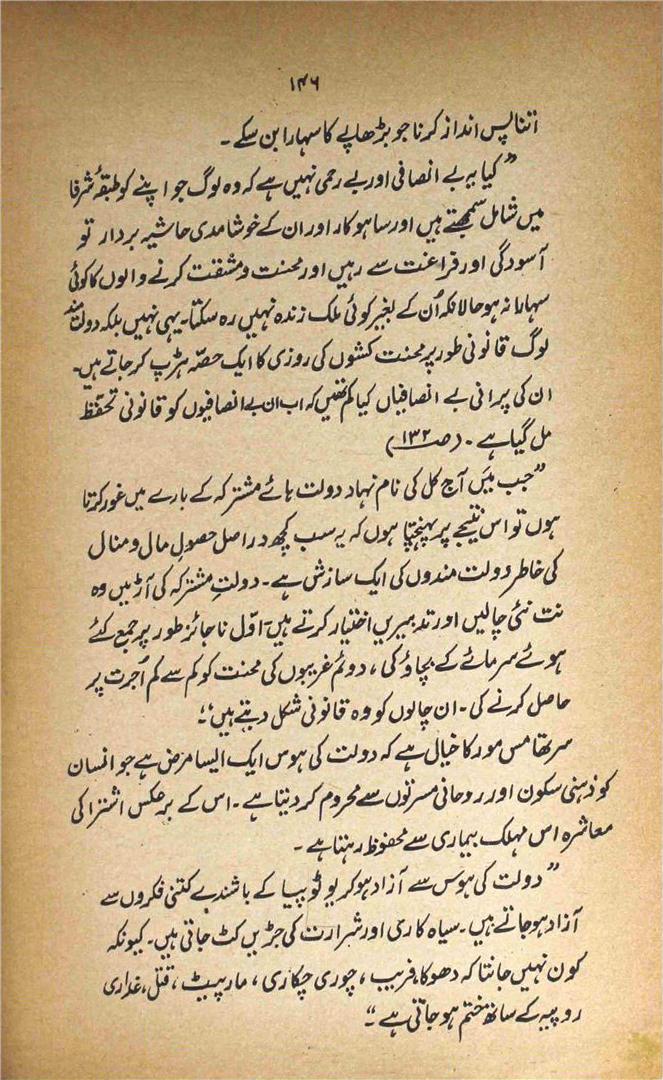 ۱۴۶
اتنا پس انداز کرنا جو بڑھاپے کا سہارا بن سکے۔
”کیا یہ بے انصافی اور بے رحمی نہیں ہے کہ وہ لوگ جو اپنے کو طبقۂ شرفا
میں شامل سمجھتے ہیں اور ساہوکار اور ان کے خوشامدی حاشیہ بردار تو
آسودگی اور فراغت سے رہیں اور محنت و مشقت کرنے والوں کا کوئی
سہارا نہ ہو حالانکہ اُن کے بغیر کوئی ملک زندہ نہیں رہ سکتا۔ یہی نہیں بلکہ دولت مند
لوگ قانونی طور پر محنت کشوں کی روزی کا ایک حصّہ ہڑپ کر جاتے ہیں۔
ان کی پرانی بے انصافیاں کیا کم تھیں کہ اب ان بے انصافیوں کو قانونی تحفّظ
مل گیا ہے۔ (ص ۱۳۲)
”جب میں آج کل کی نام نہاد دولت ہائے مشترکہ کے بارے میں غور کرتا
ہوں تو اس نتیجے پر پہنچتا ہوں کہ یہ سب کچھ دراصل حصولِ مال و منال
کی خاطر دولت مندوں کی ایک سازش ہے۔ دولتِ مشترکہ کی آڑ میں وہ
نت نئی چالیں اور تدبیریں اختیار کرتے ہیں۔ اوّل ناجائز طور پر جمع کئے
ہوئے سرمائے کے بچاؤ کی، دوئم غریبوں کی محنت کو کم سے کم اُجرت پر
حاصل کرنے کی۔ ان چالوں کو وہ قانونی شکل دیتے ہیں“
سر تھامس مور کا خیال ہے کہ دولت کی ہوس ایک ایسا مرض ہے جو انسان
کو ذہنی سکون اور روحانی مسرتوں سے محروم کر دیتا ہے۔ اس کے برعکس اشتراکی
معاشرہ اس مہلک بیماری سے محفوظ رہتا ہے۔
”دولت کی ہوس سے آزاد ہو کر یوٹوپیا کے باشندے کتنی فکروں سے
آزاد ہو جاتے ہیں۔ سیاہ کاری اور شرارت کی جڑیں کٹ جاتی ہیں۔ کیونکہ
کون نہیں جانتا کہ دھوکا، فریب، چوری چکاری، مار پیٹ، قتل، غداری
روپیہ کے ساتھ ختم ہو جاتی ہے“